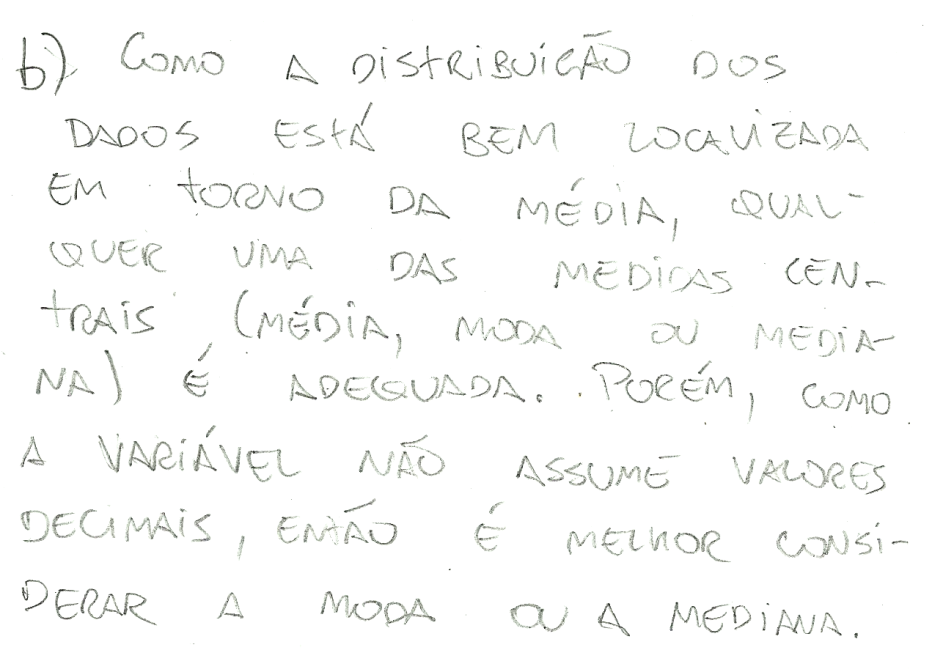 b) COMO A DISTRIBUIÇÃO DOS
DADOS ESTÁ BEM LOCALIZADA
EM TORNO DA MÉDIA, QUAL-
QUER UMA DAS MEDIDAS CEN-
TRAIS (MÉDIA, MODA OU MEDIA-
NA) É ADEQUADA. PORÉM, COMO
A VARIÁVEL NÃO ASSUME VALORES
DECIMAIS, ENTÃO É MELHOR CONSI-
DERAR A MODA OU A MEDIANA.